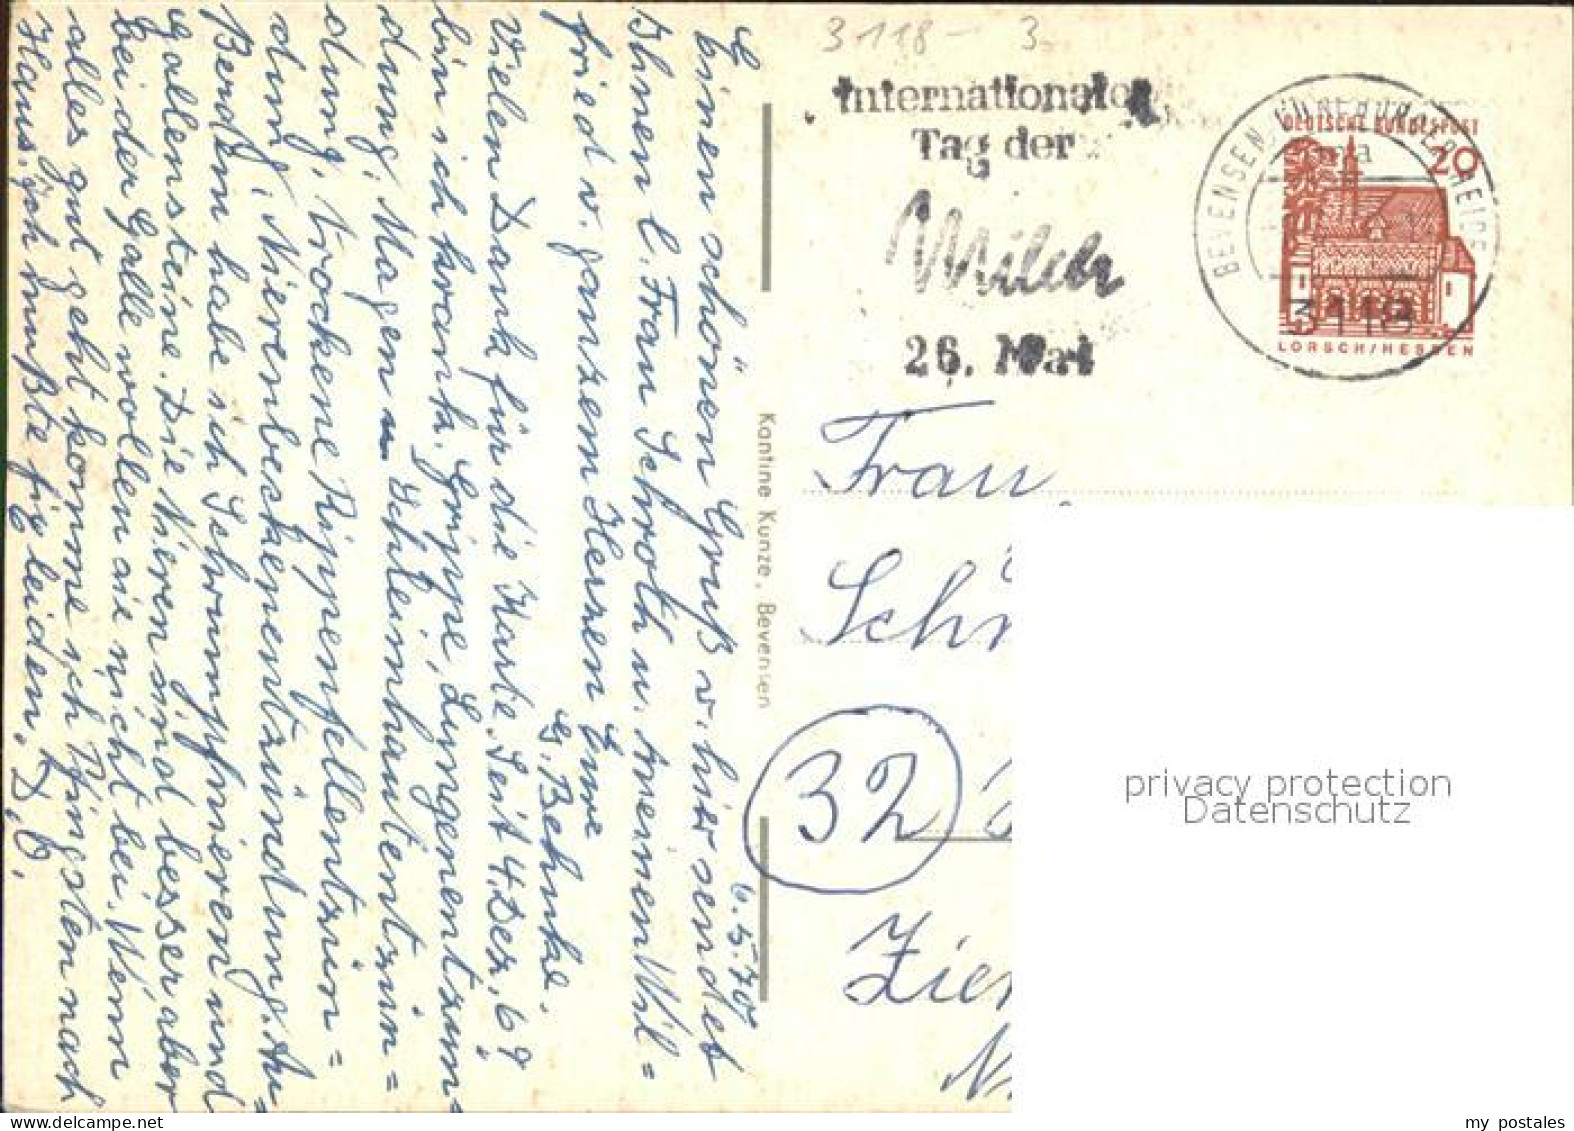 3118 - 3
Internationaler
Tag der
Milch
26. Mai
BEVENSEN
3118
DEUTSCHE BUNDESPOST
20
LORSCH/HESSEN
6.5.70
Einen schönen Gruß v. hier sendet
Ihnen l. Frau Schroth u. Ihrem Wil=
fried v. ganzem Herzen Eure
G. Behnke.
Vielen Dank für die Karte. Seit 4. Dez. 69
bin ich krank. Grippe, Lungenentzün=
dung, Magen u. Schleimhautentzün=
dung, trockene Rippenfellentzün=
dung, Nierenbeckenentzündung. Au=
ßerdem habe ich Schrumpfnieren und
Gallensteine. Die Nieren sind besser aber
bei der Galle wollen sie nicht bei. Wenn
alles gut geht komme ich Pfingsten nach
Haus. Ich mußte leiden. D. O.
Kantine Kunze, Bevensen
Frau
Sch
32
Zie
privacy protection
Datenschutz
my postales